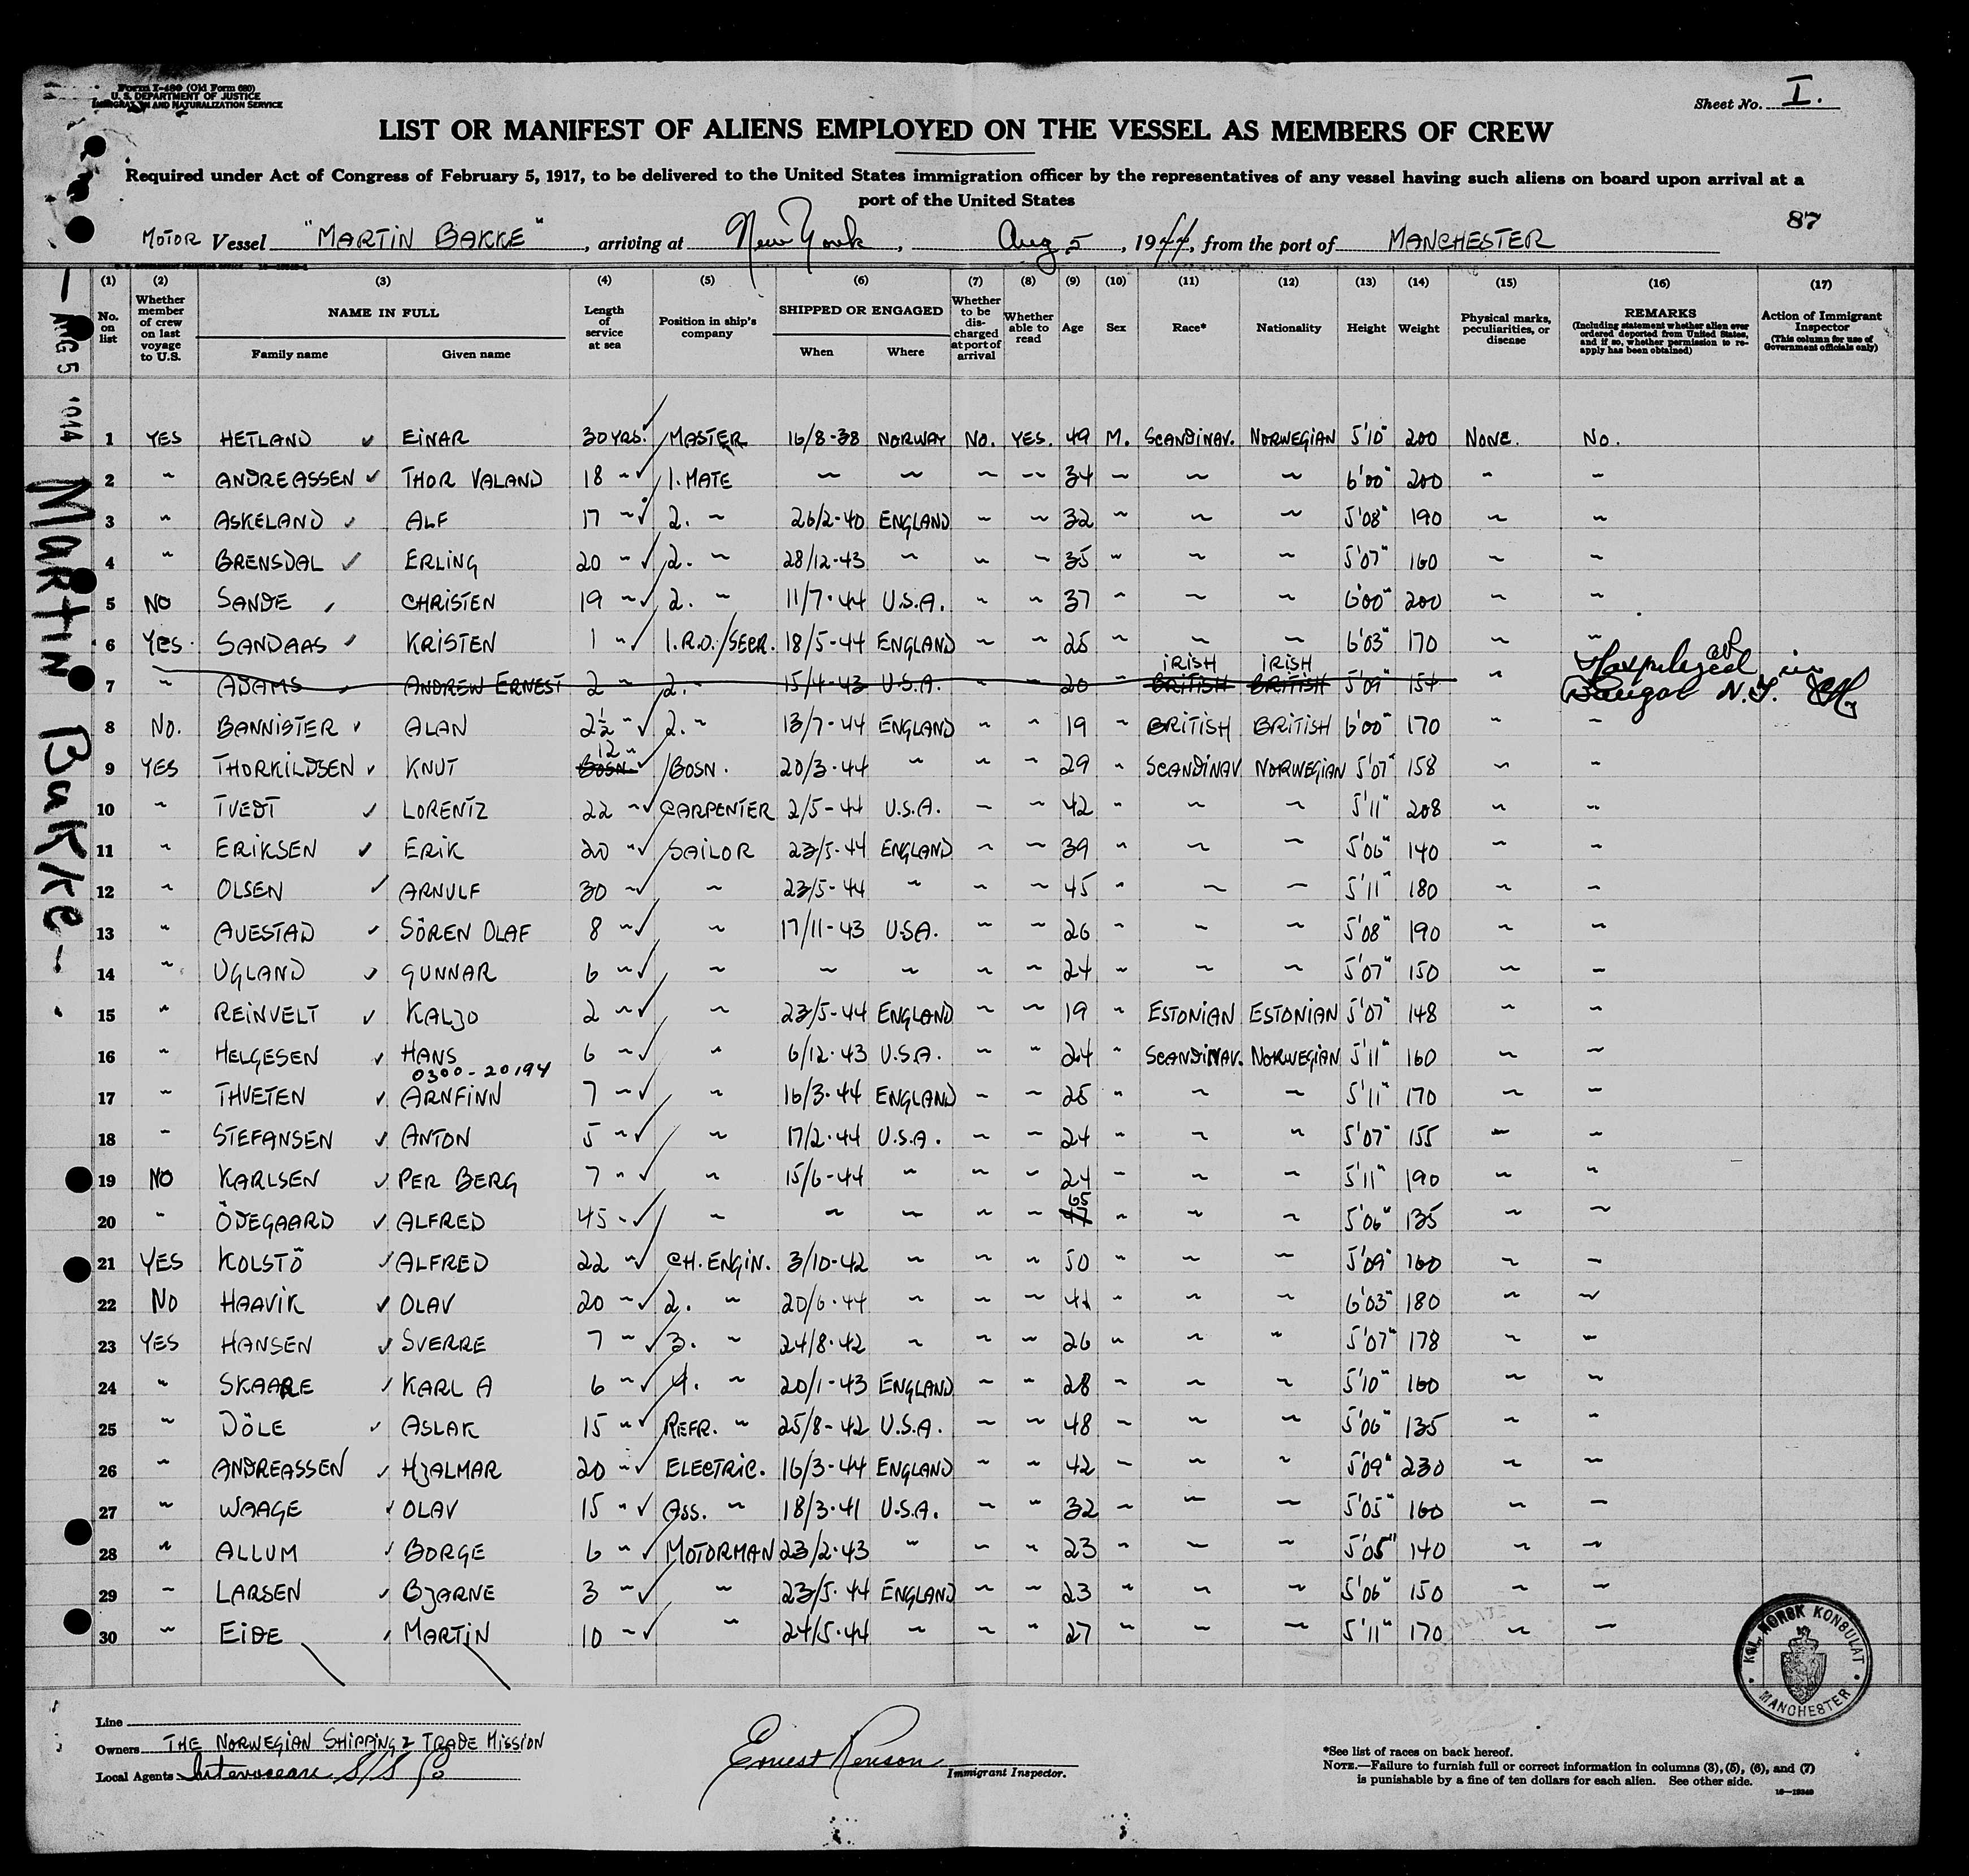 Form I-480 (Old Form 680)
U. S. DEPARTMENT OF JUSTICE
IMMIGRATION AND NATURALIZATION SERVICE
Sheet No. I.
LIST OR MANIFEST OF ALIENS EMPLOYED ON THE VESSEL AS MEMBERS OF CREW
Required under Act of Congress of February 5, 1917, to be delivered to the United States immigration officer by the representatives of any vessel having such aliens on board upon arrival at a
port of the United States
87
MOTOR Vessel "MARTIN BAKKE", arriving at New York, Aug 5, 1944, from the port of MANCHESTER
(1) No. on list
(2) Whether member of crew on last voyage to U.S.
(3) NAME IN FULL Family name Given name
(4) Length of service at sea
(5) Position in ship's company
(6) SHIPPED OR ENGAGED When Where
(7) Whether to be discharged at port of arrival
(8) Whether able to read
(9) Age
(10) Sex
(11) Race*
(12) Nationality
(13) Height
(14) Weight
(15) Physical marks, peculiarities, or disease
(16) REMARKS (Including statement whether alien ever ordered deported from United States, and if so, whether permission to reapply has been obtained)
(17) Action of Immigrant Inspector (This column for use of Government officials only)
1 YES HETLAND EINAR 30 YRS. MASTER 16/8-38 NORWAY NO. YES. 49 M. SCANDINAV. NORWEGIAN 5'10" 200 NONE. No.
2 " ANDREASSEN THOR VALAND 18 " 1. MATE " " " " 34 " " " 6'00" 200 " "
3 " ASKELAND ALF 17 " 2. " 26/2-40 ENGLAND " " 32 " " " 5'08" 190 " "
4 " BRENSDAL ERLING 20 " 2. " 28/12-43 " " " 35 " " " 5'07" 160 " "
5 NO SANDE CHRISTEN 19 " 2. " 11/7-44 U.S.A. " " 37 " " " 6'00" 200 " "
6 YES SANDAAS KRISTEN 1 " 1.R.O./SECR. 18/5-44 ENGLAND " " 25 " " " 6'03" 170 " "
7 " ADAMS ANDREW ERNEST 2 " 2. " 15/4-43 U.S.A. " " 20 " IRISH BRITISH IRISH BRITISH 5'09" 154 " Hospitalized in Bangor N.I.
8 NO. BANNISTER ALAN 2½ " 2. " 13/7-44 ENGLAND " " 19 " BRITISH BRITISH 6'00" 170 " "
9 YES THORKILDSEN KNUT 12 " BOSN. BOSN. 20/3-44 " " " 29 " SCANDINAV NORWEGIAN 5'07" 158 " "
10 " TVEDT LORENTZ 22 " CARPENTER 2/5-44 U.S.A. " " 42 " " " 5'11" 208 " "
11 " ERIKSEN ERIK 20 " SAILOR 23/5-44 ENGLAND " " 39 " " " 5'06" 140 " "
12 " OLSEN ARNULF 30 " " 23/5-44 " " " 45 " " " 5'11" 180 " "
13 " AUESTAD SÖREN OLAF 8 " " 17/11-43 U.S.A. " " 26 " " " 5'08" 190 " "
14 " UGLAND GUNNAR 6 " " " " " " 24 " " " 5'07" 150 " "
15 " REINVELT KALJO 2 " " 23/5-44 ENGLAND " " 19 " ESTONIAN ESTONIAN 5'07" 148 " "
16 " HELGESEN HANS 6 " " 6/12-43 U.S.A. " " 24 " SCANDINAV. NORWEGIAN 5'11" 160 " "
0300-20194
17 " THVETEN ARNFINN 7 " " 16/3-44 ENGLAND " " 25 " " " 5'11" 170 " "
18 " STEFANSEN ANTON 5 " " 17/2-44 U.S.A. " " 24 " " " 5'07" 155 " "
19 NO KARLSEN PER BERG 7 " " 15/6-44 " " " 24 " " " 5'11" 190 " "
20 " ÖDEGAARD ALFRED 45 " " " " " " 65 " " " 5'06" 135 " "
21 YES KOLSTÖ ALFRED 22 " CH. ENGIN. 3/10-42 " " " 50 " " " 5'09" 160 " "
22 NO HAAVIK OLAV 20 " 2. " 20/6-44 " " " 41 " " " 6'03" 180 " "
23 YES HANSEN SVERRE 7 " 3. " 24/8-42 " " " 26 " " " 5'07" 178 " "
24 " SKAARE KARL A 6 " 4. " 20/1-43 ENGLAND " " 28 " " " 5'10" 160 " "
25 " DÖLE ASLAK 15 " REFR. " 25/8-42 U.S.A. " " 48 " " " 5'06" 135 " "
26 " ANDREASSEN HJALMAR 20 " ELECTRIC. 16/3-44 ENGLAND " " 42 " " " 5'09" 230 " "
27 " WAAGE OLAV 15 " ASS. " 18/3-41 U.S.A. " " 32 " " " 5'05" 160 " "
28 " ALLUM BORGE 6 " MOTORMAN 23/2-43 " " " 23 " " " 5'05" 140 " "
29 " LARSEN BJARNE 3 " " 23/5-44 ENGLAND " " 23 " " " 5'06" 150 " "
30 " EIDE MARTIN 10 " " 24/5-44 " " " 27 " " " 5'11" 170 " "
AUG 5 1944 MARTIN BAKKE
Line
Owners THE NORWEGIAN SHIPPING & TRADE MISSION
Local Agents Interocean S/S Co
Ernest Renson
Immigrant Inspector.
KGL. NORSK KONSULAT
MANCHESTER
*See list of races on back hereof.
NOTE.—Failure to furnish full or correct information in columns (3), (5), (6), and (7)
is punishable by a fine of ten dollars for each alien. See other side.